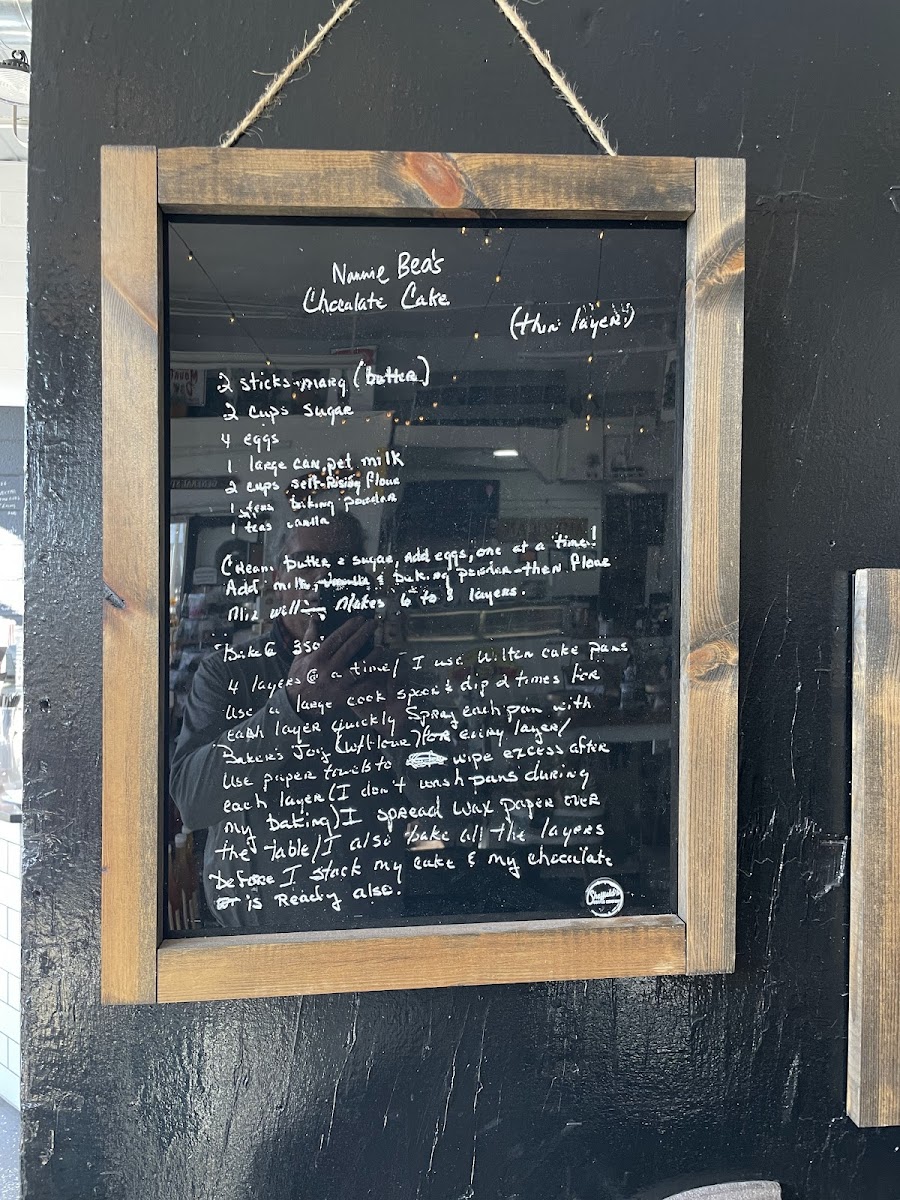 Nannie Bea's
Chocalate Cake
(thin layers)
2 sticks-marg (butter)
2 cups sugar
4 eggs
1 large can, pet milk
2 cups self-Rising flour
1 teas baking powder
1 teas vanilla
Cream butter & sugar, Add eggs, one at a time!
Add milk, vanilla & baking powder-then flour
Mix well- Makes 6 to 8 layers.
Bake @ 350°
4 layers @ a time/ I use Wilton cake pans
Use a large cook spoon & dip 2 times for
each layer quickly Spray each pan with
Baker's Joy (w/flour) for every layer/
Use paper towels to wipe excess after
each layer (I don't wash pans during
my baking) I spread wax paper over
the table/I also bake all the layers
before I stack my cake & my chocalate
is Ready also.